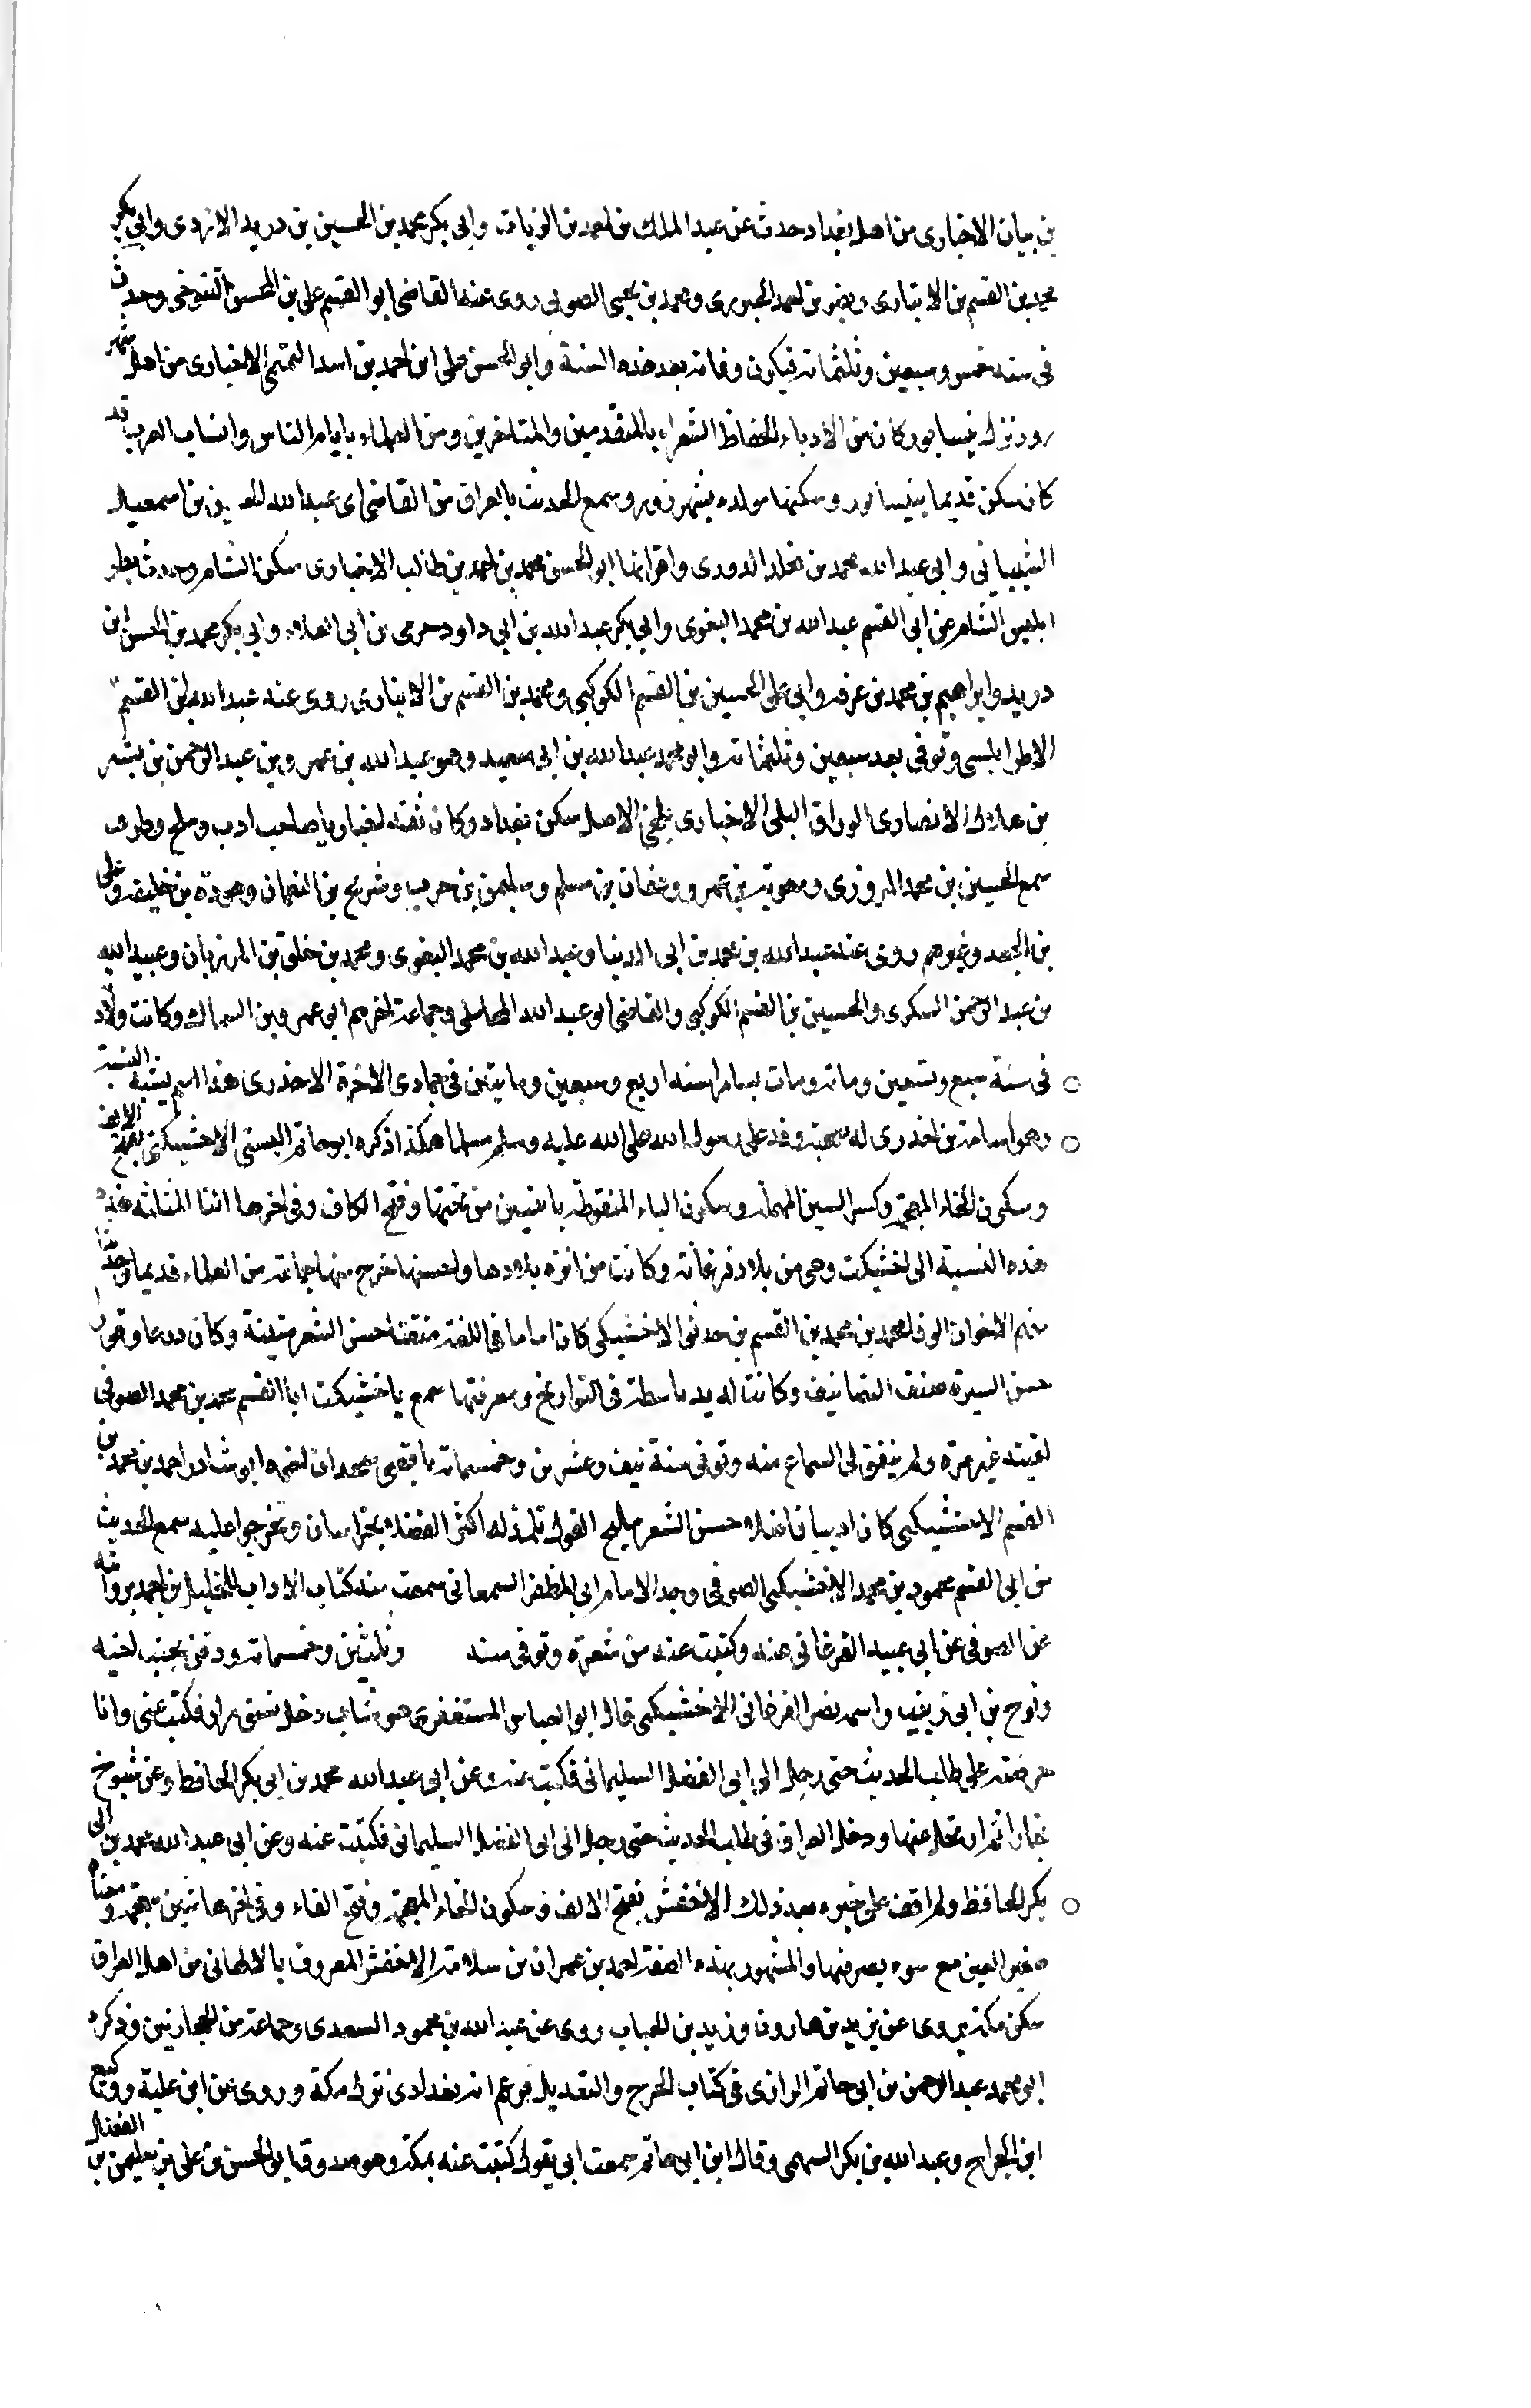 بن بيان الاخبارى من اهل بغداد حدث عن عبد الملك بن احمد بن الزيات وابى بكر محمد بن الحسين بن دريد الازدى وابى بكر
محمد بن القسم بن الانبارى ونصر بن احمد الخبزرى ومحمد بن يحيى الصولى روى عنه القاضى ابو القسم على بن المحسن التنوخى وحدث
فى سنه خمس وسبعين وثلثمائه فيكون وفاته بعد هذه السنة وابو الحسن على ابن احمد بن اسد التميمى الاخبارى من اهل شهر
زور نزل نيسابور كان من الادباء الحفاظ الشعراء بالمتقدمين والمتاخرين ومن العلماء بايام الناس وانساب العرب قد
كان سكن قديما بنيسابور وسكنها مولده بشهر زور وسمع الحديث بالعراق من القاضى ابى عبد الله الحسين بن اسمعيل
الشيبانى وابى عبد الله محمد بن مخلد الدورى واقرانهما ابو الحسن محمد بن احمد بن طالب الاخبارى سكن الشام وحدث بطر
ابلس الشام عن ابى القسم عبد الله بن محمد البغوى وابى بكر عبد الله بن ابى داود حرمى بن ابى العلاء وابى بكر محمد بن الحسن ابن
دريد وابراهيم بن محمد بن عرفه وابى على الحسين بن القسم الكوكبى ومحمد بن القسم بن الانبارى روى عنه عبد الله بن القسم
الاطرابلسى وتوفى بعد سبعين وثلثمائه وابو محمد عبد الله بن ابى سعيد وهو عبد الله بن عمرو بن عبد الرحمن بن بشر
بن هلال الانصارى الوراق البلخى الاخبارى بلخى الاصل سكن بغداد وكان ثقة اخباريا صاحب ادب وملح وطرف
سمع الحسين بن محمد المروزى ومعوية بن عمرو وعفان بن مسلم وسليمن بن حرب وشريح بن النعمان وهوذة بن خليفه وعلى
بن الجعد وغيرهم روى عنه عبد الله بن محمد بن ابى الدنيا وعبد الله بن محمد البغوى ومحمد بن خلف بن المرزبان وعبيد الله
بن عبد الرحمن السكرى والحسين بن القسم الكوكبى والقاضى ابو عبد الله المحاملى وجماعة اخرهم ابى عمرو بن السماك وكانت ولادته
فى سنة سبع وتسعين ومائه ومات بسامرا سنه اربع وسبعين ومايتين فى جمادى الاخرة الاخدرى هذا اسم يشبه النسبة
وهو اسامة بن اخدرى له صحبة وفد على رسول الله صلى الله عليه وسلم مسلما هكذا ذكره ابو حاتم البستى الاخسيكثى بفتح الالف
وسكون الخاء المعجمة وكسر السين المهملة وسكون الياء المنقوطه باثنين من تحتها وفتح الكاف وفى اخرها الثاء المثلثه
هذه النسبة الى اخشيكث وهى من بلاد فرغانه وكانت من انزه بلادها واحسنها خرج منها جماعة من العلماء قديما وحديثا
منهم الاخوان الوفا محمد بن محمد بن القسم بن حدثوا الاخشيكى كان اماما فى اللغة متقنا حسن الشعر متينة وكان ورعا وقور
حسن السيرة صنف التصانيف وكانت له يد باسطة فى التواريخ ومعرفتها سمع باخشيكت ابا القسم محمد بن محمد الصوفى
لقيته غير مرة ولم يتفق لى السماع منه وتوفى سنة نيف وعشرين وخمسمائه باقصى اخوه ابو شاد احمد بن محمد بن
القسم الاخشيكى كان اديبا فاضلا حسن الشعر مليح القول تلمذ له اكثر الفضلاء بخراسان وتخرجوا عليه سمع الحديث
من ابى القسم محمود بن محمد الاخشيكى الصوفى وجد الامام ابى المظفر السمعانى سمعت منه كتاب الاداب للخليل بن احمد بروايته
عن الصوفى عن ابى عبيد الفرغانى عنه وكتبت عنه من شعره وتوفى سنه وثلثين وخمسمائه ودفن بجنب اخيه
ونوح بن ابى زينب واسمه نصر الفرغانى الاخشيكى قال ابو العباس المستغفرى هو شاب دخل نسف مرارا فكتب عنى وانا
حرضته على طلب الحديث حتى رحل الى ابى الفضل السليمانى فكتب عنه وعن ابى عبد الله محمد بن ابى بكر الحافظ وعن شيوخ
بخارا ثم ارتحل عنها ودخل العراق فى طلب الحديث حتى رحل الى ابى الفضل السليمانى فكتبت عنه وعن ابى عبد الله محمد بن ابى
بكر الحافظ ولم اقف على خبره بعد ذلك الاخفش بفتح الالف وسكون الخاء المعجمة وفتح الفاء وفى اخرها شين معجمة ومعناه
صغير العين مع سوء بصر فيها والمشهور بهذه الصفة احمد بن عمران بن سلامة الاخفش المعروف بالالهانى من اهل العراق
سكن مكة يروى عن يزيد بن هارون وزيد بن الحباب روى عن عبد الله بن محمود السعدى وجماعة من الحجازيين وذكره
ابو محمد عبد الرحمن بن ابى حاتم الرازى فى كتاب الجرح والتعديل فزعم انه بغدادى نزل مكة وروى عن ابن علية ووكيع
ابن الجراح وعبد الله بن بكر السهمى وقال ابن ابى حاتم سمعت ابى يقول كتبت عنه بمكة وهو صدوق ابو الحسن بن على بن سليمن بن الفضل